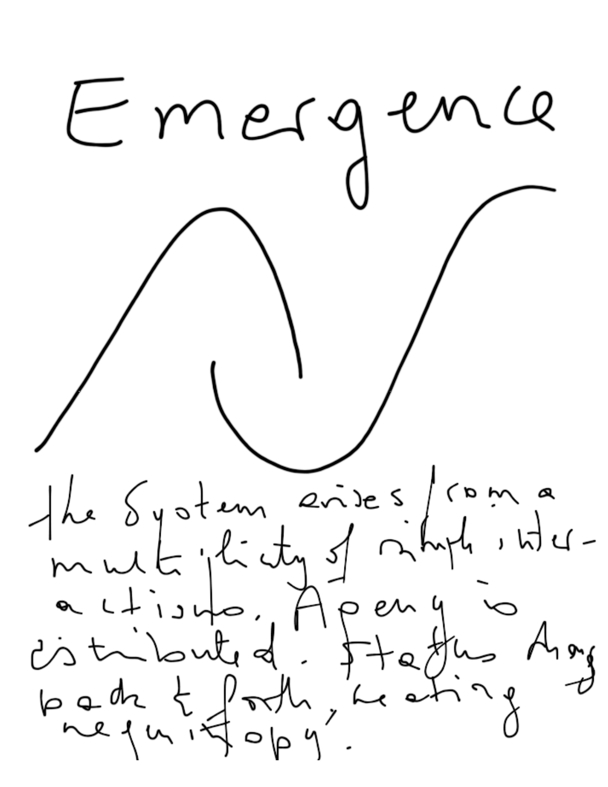 Emergence
the System arises from a
multiplicity of simple inter-
actions. Agency is
distributed. Status
back & forth, creating